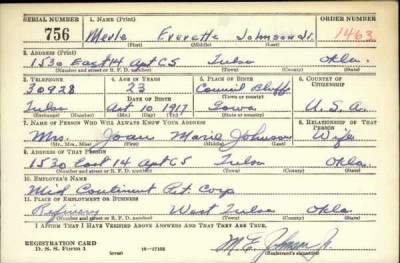 SERIAL NUMBER 1. NAME (Print) ORDER NUMBER
756 Merle Everette Johnson Jr. 1463
(First) (Middle) (Last)
2. ADDRESS (Print)
1530 East 14 Apt C5 Tulsa Okla.
(Number and street or R. F. D. number) (Town) (County) (State)
3. TELEPHONE 4. AGE IN YEARS 5. PLACE OF BIRTH 6. COUNTRY OF CITIZENSHIP
30928 23 Council Bluffs
DATE OF BIRTH (Town or county)
Tulsa Oct 10 1917 Iowa U.S.A.
(Exchange) (Number) (Mo.) (Day) (Yr.) (State or country)
7. NAME OF PERSON WHO WILL ALWAYS KNOW YOUR ADDRESS 8. RELATIONSHIP OF THAT PERSON
Mrs. Joan Marie Johnson Wife
(Mr., Mrs., Miss) (First) (Middle) (Last)
9. ADDRESS OF THAT PERSON
1530 East 14 Apt C5 Tulsa Okla.
(Number and street or R. F. D. number) (Town) (County) (State)
10. EMPLOYER'S NAME
Mid Continent Pet. Corp
11. PLACE OF EMPLOYMENT OR BUSINESS
Refinery West Tulsa Okla.
(Number and street or R. F. D. number) (Town) (County) (State)
I AFFIRM THAT I HAVE VERIFIED ABOVE ANSWERS AND THAT THEY ARE TRUE.
REGISTRATION CARD
D. S. S. Form 1 (over) 16—17105 M.E. Johnson Jr.
(Registrant's signature)